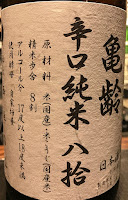 亀齢
辛口純米 八拾
日本酒
原材料 米(国産)・米こうじ(国産米)
精米歩合 8割
アルコール分 17度以上18度未満